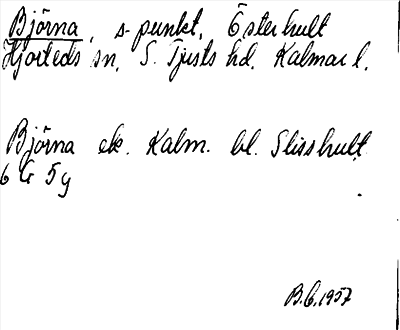 Björna, s-punkt, Österhult
Hjorteds sn, S. Tjusts hd. Kalmar l.
Björna ek. Kalm. bl. Slisshult
6 G 5 g
B.G. 1957